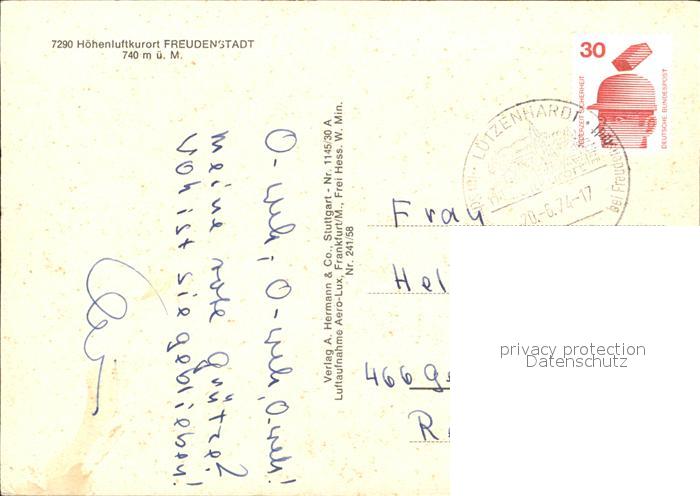 7290 Höhenluftkurort FREUDENSTADT
740 m ü. M.
O-weh, O-weh, O-weh!
meine rote Grütze?
Wo ist sie geblieben!
Verlag A. Hermann & Co., Stuttgart - Nr. 1145/30 A
Luftaufnahme Aero-Lux, Frankfurt/M., Frei Hess. W. Min.
Nr. 241/58
30
JEDERZEIT SICHERHEIT
DEUTSCHE BUNDESPOST
LÜTZENHARDT
bei Freudens
20.-6.74-17
Frau
Hel
466 Ge
R
privacy protection
Datenschutz